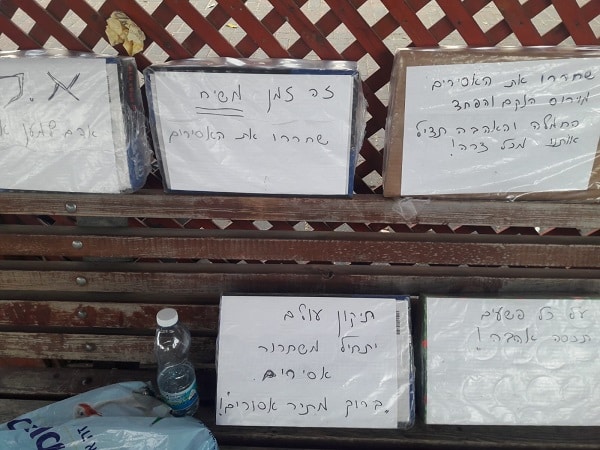 זה זמן משיח
שחררו את האסירים
שחררו את האסירים
מוירוס הנקם והפחד
החמלה והאהבה תציל
אותנו מכל צרה!
תיקון עולם
יתחיל משחרור
אסירים.
ברוך מתיר אסורים!
על כל פשעים
תכסה אהבה!